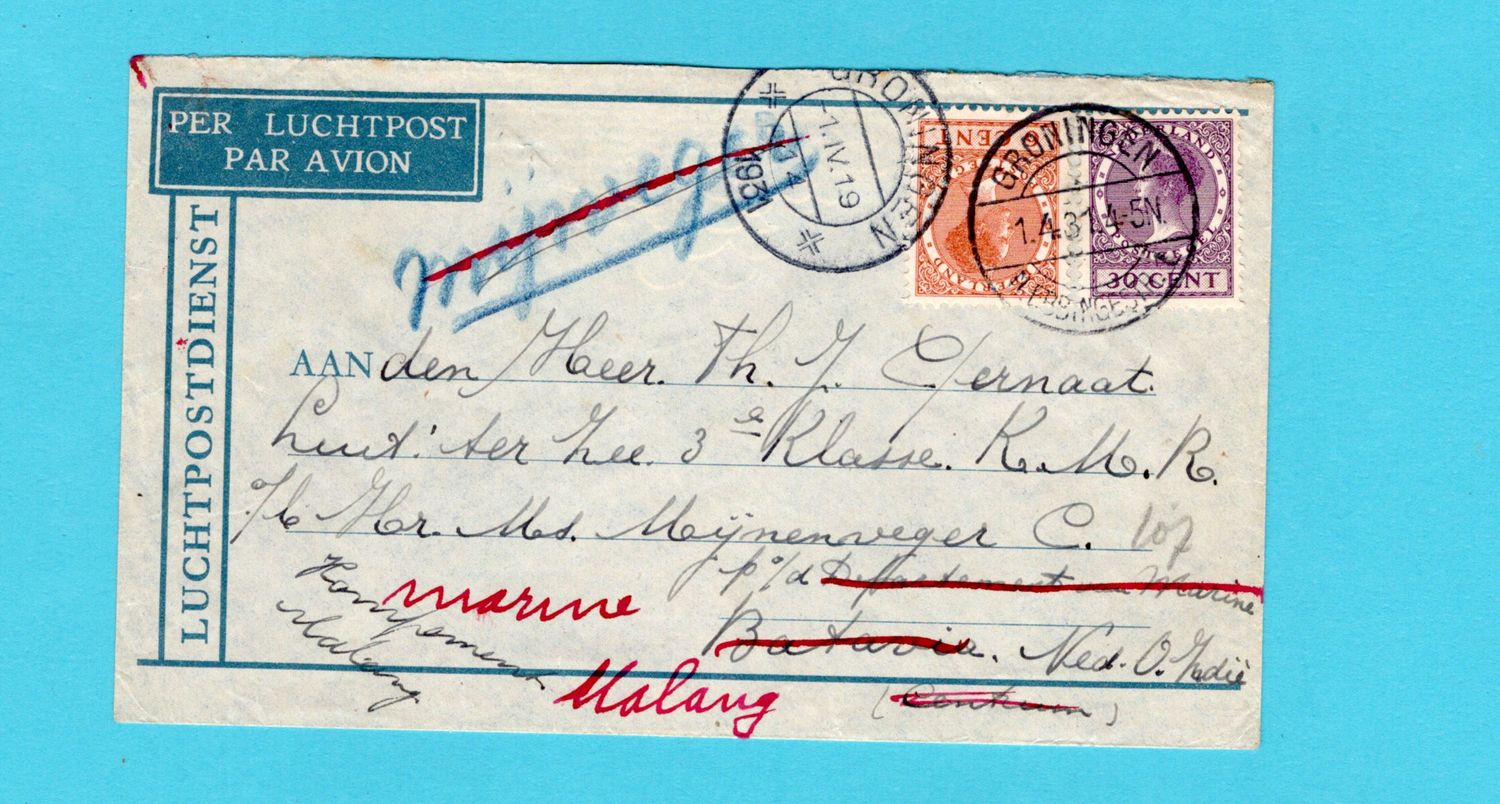 PER LUCHTPOST
PAR AVION
LUCHTPOSTDIENST
GRONINGEN
-1.IV.19
1931
GRONINGEN
1.4.31 4-5N.
CENT
NEDERLAND
30 CENT
AAN den Heer. Th. J. Gernaat.
Luit: ter Zee. 3e Klasse. K.M.R.
a/b Hr. Ms. Mijnenveger C. 107
p/d Departement van Marine
Batavia. Ned. O. Indië
(Centrum)
marine
Malang
Kampement
Malang